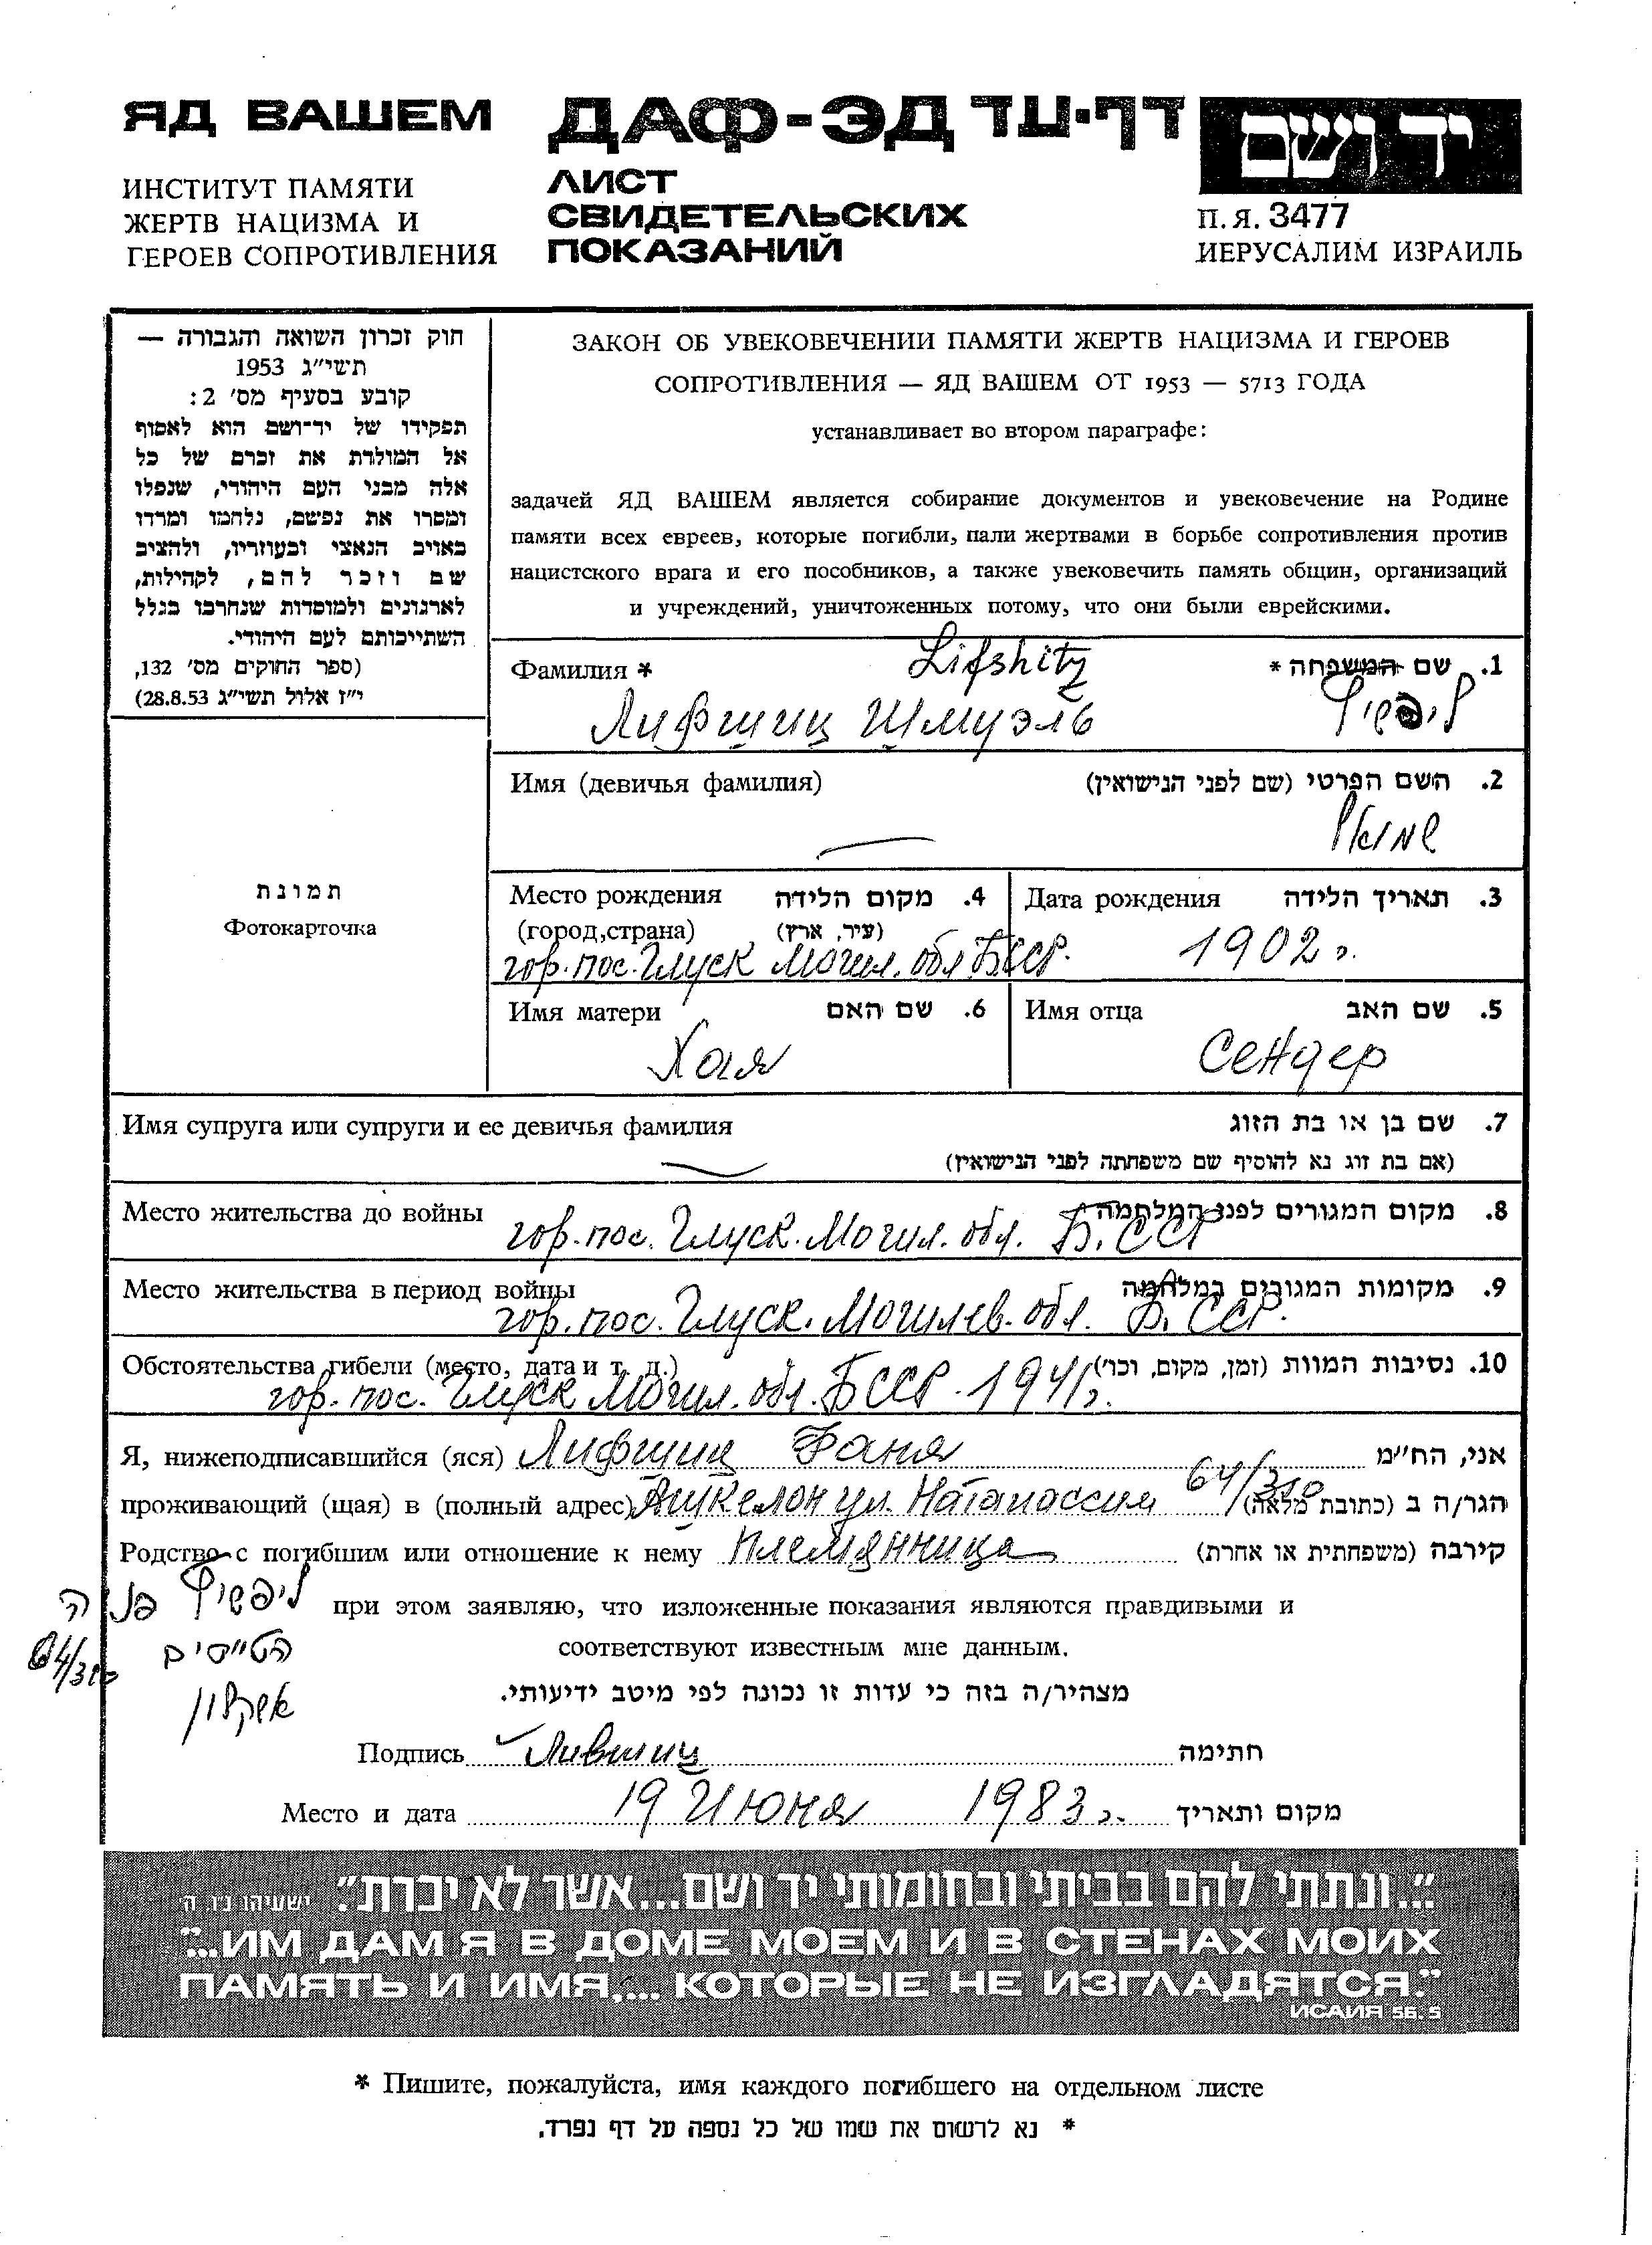 ЯД ВАШЕМ
ИНСТИТУТ ПАМЯТИ
ЖЕРТВ НАЦИЗМА И
ГЕРОЕВ СОПРОТИВЛЕНИЯ
ДАФ-ЭД דף-עד
ЛИСТ
СВИДЕТЕЛЬСКИХ
ПОКАЗАНИЙ
יד ושם
П.Я. 3477
ИЕРУСАЛИМ ИЗРАИЛЬ
חוק זכרון השואה והגבורה —
תשי״ג 1953
קובע בסעיף מס׳ 2:
תפקידו של יד־ושם הוא לאסוף
אל המולדת את זכרם של כל
אלה מבני העם היהודי, שנפלו
ומסרו את נפשם, נלחמו ומרדו
באויב הנאצי ובעוזריו, ולהציב
שם וזכר להם, לקהילות,
לארגונים ולמוסדות שנחרבו בגלל
השתייכותם לעם היהודי.
(ספר החוקים מס׳ 132,
י״ז אלול תשי״ג 28.8.53)
ЗАКОН ОБ УВЕКОВЕЧЕНИИ ПАМЯТИ ЖЕРТВ НАЦИЗМА И ГЕРОЕВ
СОПРОТИВЛЕНИЯ — ЯД ВАШЕМ ОТ 1953 — 5713 ГОДА
устанавливает во втором параграфе:
задачей ЯД ВАШЕМ является собирание документов и увековечение на Родине
памяти всех евреев, которые погибли, пали жертвами в борьбе сопротивления против
нацистского врага и его пособников, а также увековечить память общин, организаций
и учреждений, уничтоженных потому, что они были еврейскими.
Фамилия * Lifshitz 1. שם המשפחה *
Лифшиц Шмуэль ליפשיץ
Имя (девичья фамилия) 2. השם הפרטי (שם לפני הנישואין)
שמואל
תמונת
Фотокарточка
Место рождения 4. מקום הלידה
(город,страна) (עיר, ארץ)
гор. пос. Глуск Могил. обл БССР.
Дата рождения 3. תאריך הלידה
1902 г.
Имя матери 6. שם האם
Хая
Имя отца 5. שם האב
Сендер
Имя супруга или супруги и ее девичья фамилия 7. שם בן או בת הזוג
(אם בת זוג נא להוסיף שם משפחתה לפני הנישואין)
Место жительства до войны 8. מקום המגורים לפני המלחמה
гор. пос. Глуск. Могил. обл. Б. ССР
Место жительства в период войны 9. מקומות המגורים במלחמה
гор. пос. Глуск. Могилев. обл. Б. ССР.
Обстоятельства гибели (место, дата и т. д.) 10. נסיבות המוות (זמן, מקום, וכו׳)
гор. пос. Глуск Могил. обл. БССР. 1941 г.
Я, нижеподписавшийся (яся) Лифшиц Фаня אני, הח״מ
проживающий (щая) в (полный адрес) Ашкелон ул. 64/310 הגר/ה ב (כתובת מלאה)
Родство с погибшим или отношение к нему племянница קירבה (משפחתית או אחרת)
ליפשיץ פניה
при этом заявляю, что изложенные показания являются правдивыми и
הטייסים 64/310
соответствуют известным мне данным.
אשקלון
מצהיר/ה בזה כי עדות זו נכונה לפי מיטב ידיעותי.
Подпись Лившиц חתימה
Место и дата 19 Июня 1983 г. מקום ותאריך
״...ונתתי להם בביתי ובחומותי יד ושם...אשר לא יכרת״. ישעיהו נ״ו ה׳
"...ИМ ДАМ Я В ДОМЕ МОЕМ И В СТЕНАХ МОИХ
ПАМЯТЬ И ИМЯ,... КОТОРЫЕ НЕ ИЗГЛАДЯТСЯ."
ИСАИЯ 56. 5
* Пишите, пожалуйста, имя каждого погибшего на отдельном листе
* נא לרשום את שמו של כל נספה על דף נפרד.